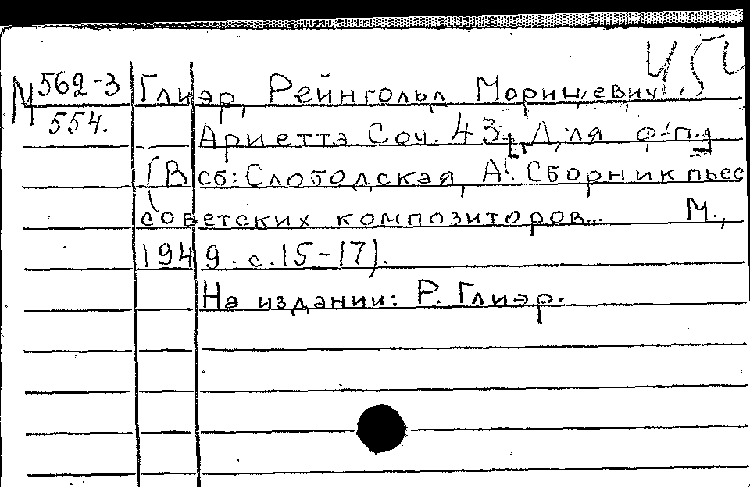 454
М 562-3
554.
Глиэр, Рейнгольд Морицевич.
Ариетта Соч. 43, Для ф-п.
(В сб: Слободская, А. Сборник пьес
советских композиторов. М.,
1949. с. 15-17).
На издании: Р. Глиэр.